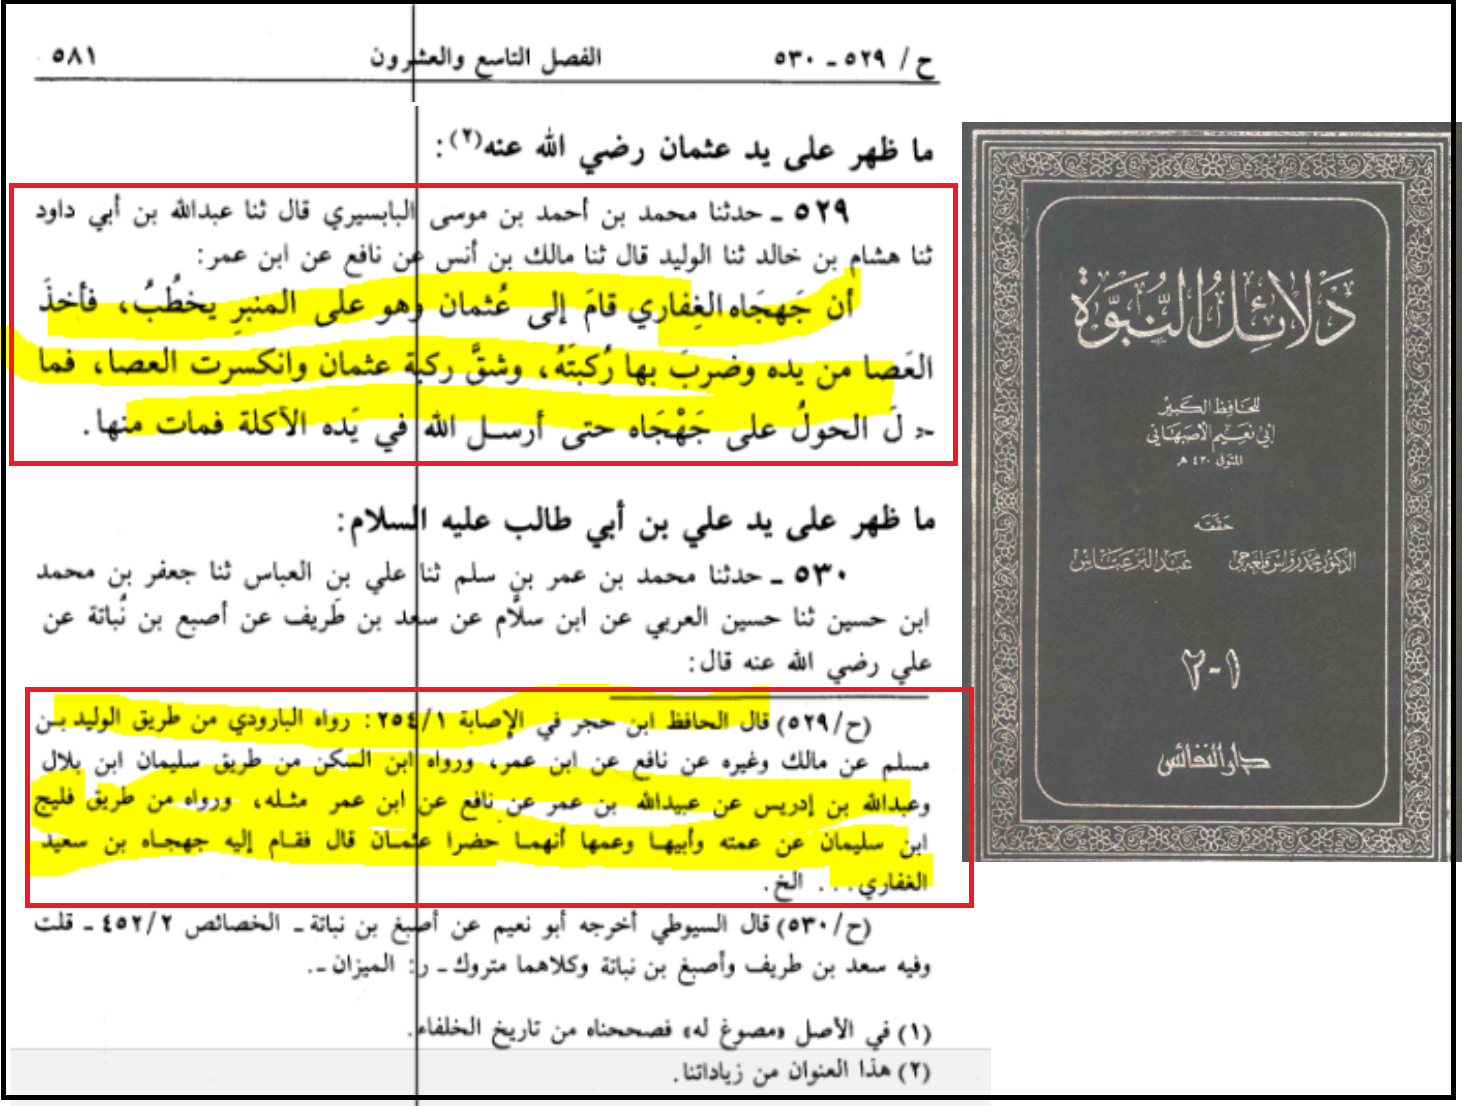 ح / ٥٢٩ - ٥٣٠ الفصل التاسع والعشرون ٥٨١
ما ظهر على يد عثمان رضي الله عنه(٢):
٥٢٩ - حدثنا محمد بن أحمد بن موسى البابسيري قال ثنا عبدالله بن أبي داود
ثنا هشام بن خالد ثنا الوليد قال ثنا مالك بن أنس عن نافع عن ابن عمر:
أن جَهجَاه الغِفاري قامَ إلى عُثمان وهو على المنبرِ يخطُبُ، فأخذَ
العَصا من يده وضربَ بها رُكبتَهُ، وشقَّ ركبة عثمان وانكسرت العصا، فما
لَ الحولُ على جَهْجَاه حتى أرسل الله في يَده الأكلة فمات منها.
ما ظهر على يد علي بن أبي طالب عليه السلام:
٥٣٠ - حدثنا محمد بن عمر بن سلم ثنا علي بن العباس ثنا جعفر بن محمد
ابن حسين ثنا حسين العربي عن ابن سلام عن سعد بن طَريف عن أصبع بن نُباتة عن
علي رضي الله عنه قال:
(ح/٥٢٩) قال الحافظ ابن حجر في الإصابة ٢٥٤/١: رواه البارودي من طريق الوليد بن
مسلم عن مالك وغيره عن نافع عن ابن عمر، ورواه ابن السكن من طريق سليمان ابن بلال
وعبدالله بن إدريس عن عبيدالله بن عمر عن نافع عن ابن عمر مثله، ورواه من طريق فليج
ابن سليمان عن عمته وأبيها وعمها أنهما حضرا عثمان قال فقام إليه جهجاه بن سعيد
الغفاري... الخ.
(ح/٥٣٠) قال السيوطي أخرجه أبو نعيم عن أصبغ بن نباتة - الخصائص ٤٥٢/٢ - قلت
وفيه سعد بن طريف وأصبغ بن نباتة وكلاهما متروك - ر: الميزان -.
(١) في الأصل «مصوغ له» فصححناه من تاريخ الخلفاء.
(٢) هذا العنوان من زياداتنا.
دَلائِلُ النُّبُوَّة
للحافظ الكبير
أبي نعيم الأصبهاني
المتوفى ٤٣٠ هـ
حققه
الدكتور محمد رواس قلعه جي عبد البر عباس
١-٢
دار النفائس